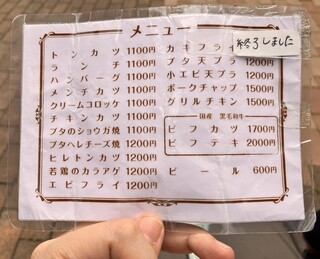 メニュー
トンカツ 1100円
ランチ 1100円
ハンバーグ 1100円
メンチカツ 1100円
クリームコロッケ 1100円
チキンカツ 1100円
ブタのショウガ焼 1100円
ブタヘレチーズ焼 1200円
ヒレトンカツ 1200円
若鶏のカラアゲ 1200円
エビフライ 1200円
カキフライ
終了しました
ブタ天プラ 1200円
小エビ天プラ 1200円
ポークチャップ 1500円
グリルチキン 1500円
国産 黒毛和牛
ビフカツ 1700円
ビフテキ 2000円
ビール 600円